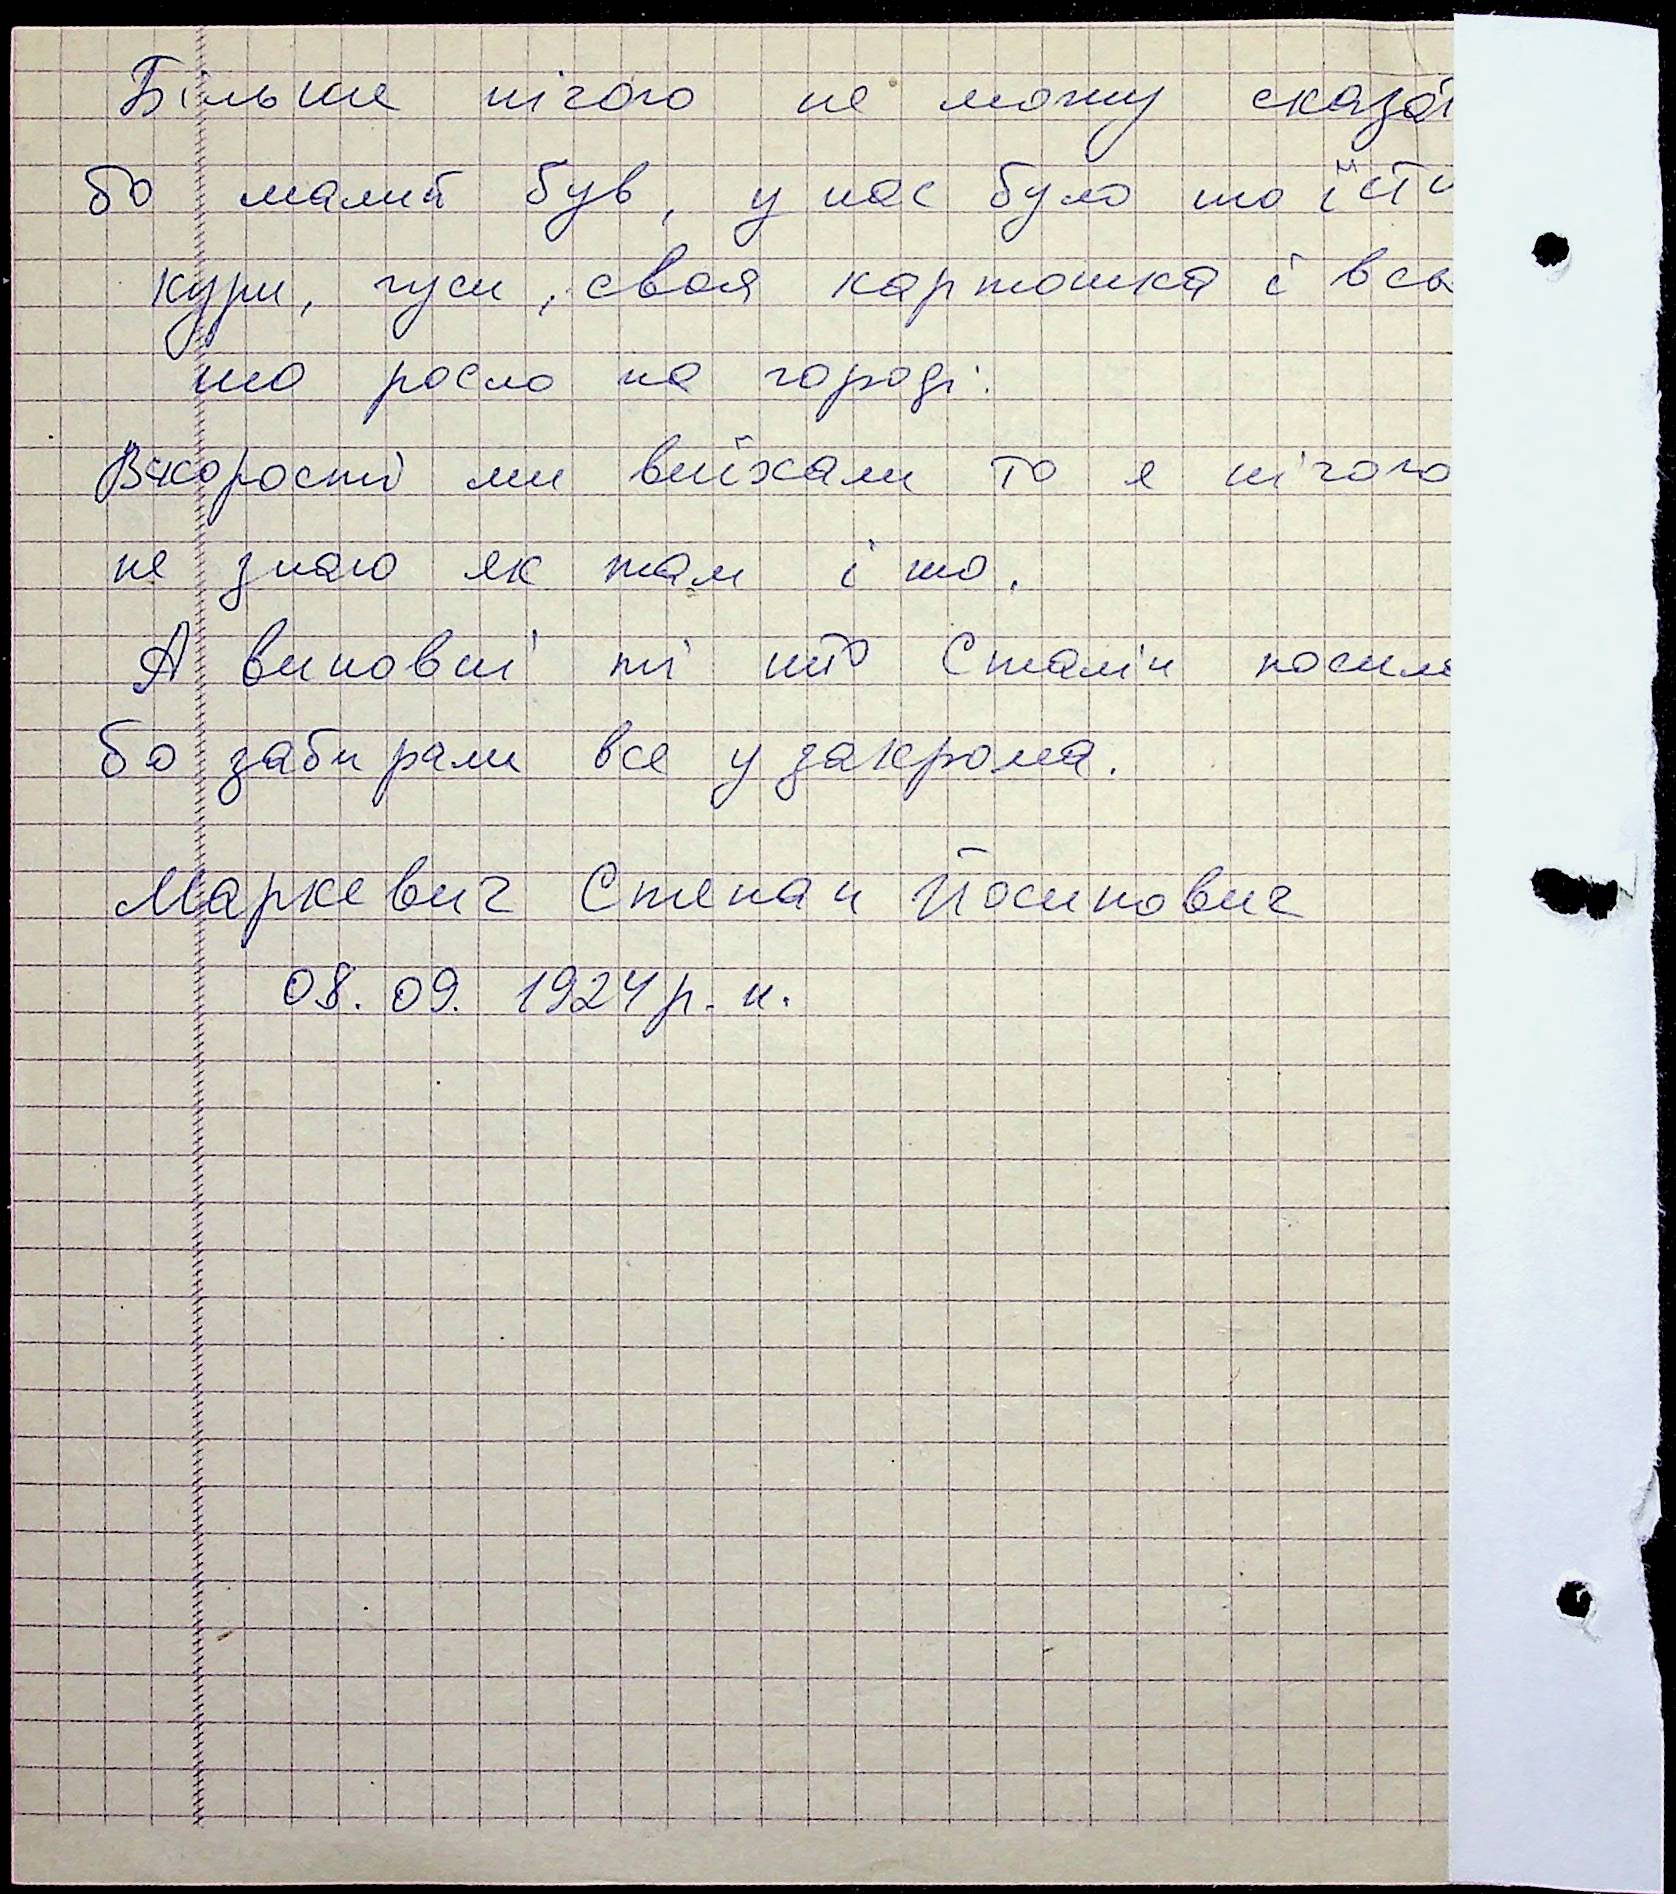 Більше нічого не можу сказат
бо малий був, у нас було шо їсти
кури, гуси, своя картошка і всьо
шо росло на городі.
Вскорості ми виїхали то я нічого
не знаю як там і шо.
А виновні ті што Сталін посила
бо забирали все у закрома.
Маркевич Степан Йосипович
08. 09. 1924 р. н.